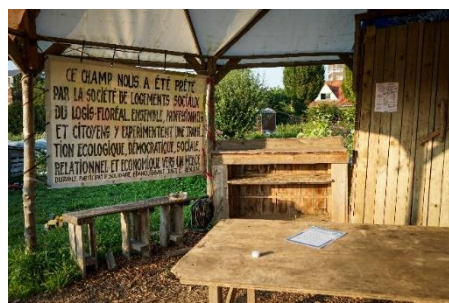 CE CHAMP NOUS A ÉTÉ PRÊTÉ
PAR LA SOCIÉTÉ DE LOGEMENTS SOCIAUX
DU LOGIS-FLORÉAL. ENSEMBLE, PROFESSIONNELS
ET CITOYENS Y EXPÉRIMENTENT UNE TRANSI
TION ECOLOGIQUE, DÉMOCRATIQUE, SOCIALE,
RELATIONNEL ET ECONOMIQUE VERS UN MONDE
DURABLE, PARTICIPATIF, SOLIDAIRE, JUSTE ET